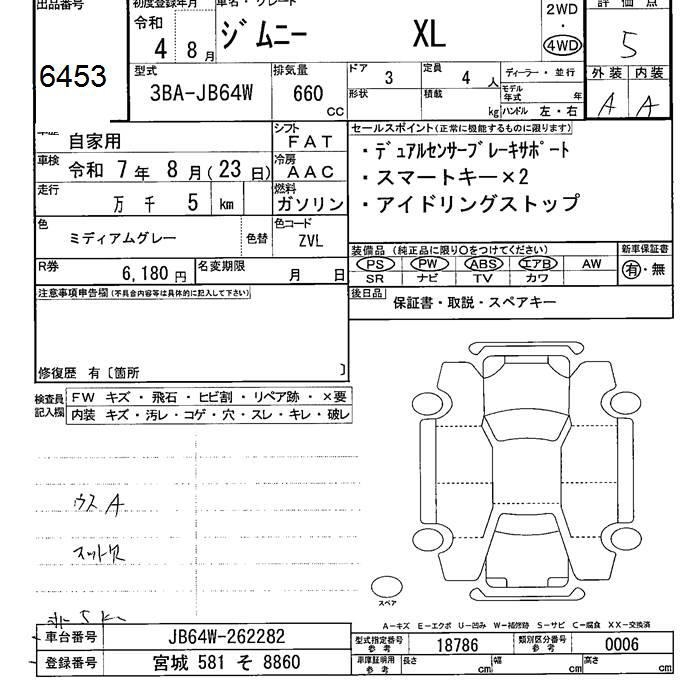 出品番号
6453
初度登録年月
令和
4 8 月
車名・グレード
ジムニー XL
2WD
・
4WD
評価点
5
型式
3BA-JB64W
排気量
660
cc
ドア
3
定員
4 人
形状
積載
kg
ディーラー・並行
モデル
年式 年
ハンドル 左・右
外装 内装
A A
車歴
自家用
シフト
FAT
車検
令和 7 年 8 月(23 日)
冷房
AAC
走行
万 千 5 km
燃料
ガソリン
色
ミディアムグレー
色替
色コード
ZVL
R券
6,180 円
名変期限
月 日
セールスポイント(正常に機能するものに限ります)
・デュアルセンサーブレーキサポート
・スマートキー×2
・アイドリングストップ
装備品 (純正品に限り○をつけてください)
新車保証書
PS PW ABS エアB AW
SR ナビ TV カワ
有・無
後日品
保証書・取説・スペアキー
注意事項申告欄(不具合内容等は具体的に記入して下さい)
修復歴 有〔箇所 〕
検査員
記入欄
FW キズ・飛石・ヒビ割・リペア跡・×要
内装 キズ・汚レ・コゲ・穴・スレ・キレ・破レ
ウスA
スペア
A−キズ E−エクボ U−凹み W−補修跡 S−サビ C−腐食 XX−交換済
車台番号
JB64W-262282
登録番号
宮城 581 そ 8860
型式指定番号
参考
18786
類別区分番号
参考
0006
車庫証明用
参考
長さ cm
幅 cm
高さ cm